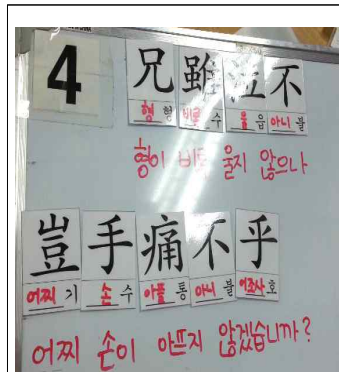 4
兄雖泣不
형 형 비로 수 울 음 아니 불
형이 비록 울지 않으나
豈手痛不乎
어찌 기 손 수 아플 통 아니 불 어조사 호
어찌 손이 아프지 않겠습니까?